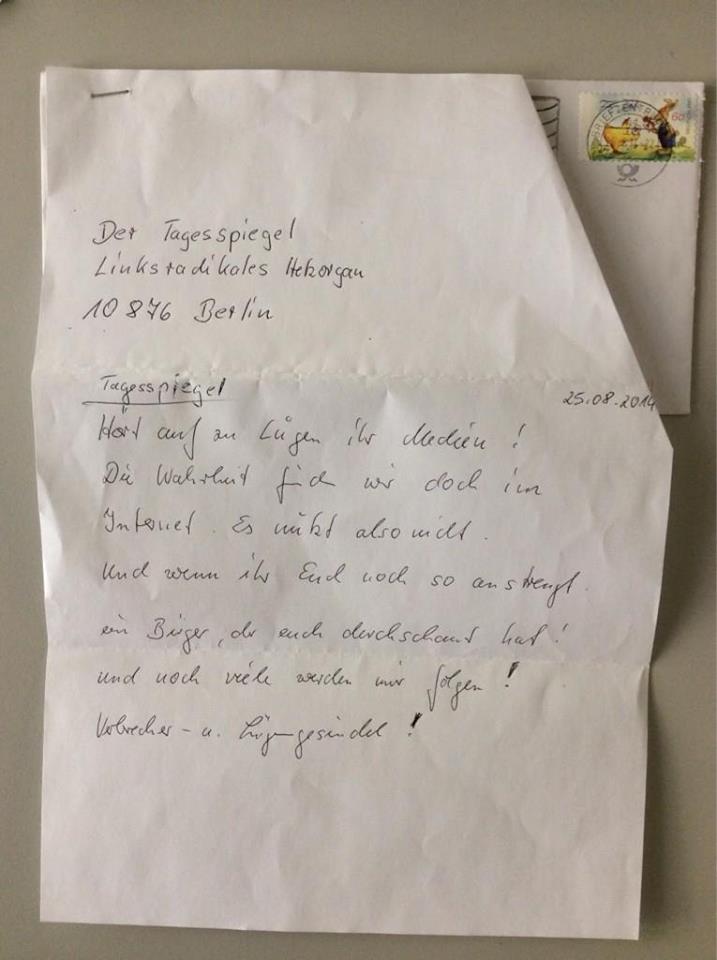 BRIEFZENTR
60
Der Tagesspiegel
Linksradikales Hetzorgan
10876 Berlin
Tagesspiegel
25.08.2014
Hört auf zu Lügen ihr Medien!
Die Wahrheit finden wir doch im
Internet. Es nützt also nicht.
Und wenn ihr Euch noch so anstrengt.
ein Bürger, der euch durchschaut hat!
und noch viele werden mir folgen!
Verbrecher- u. Lügengesindel!